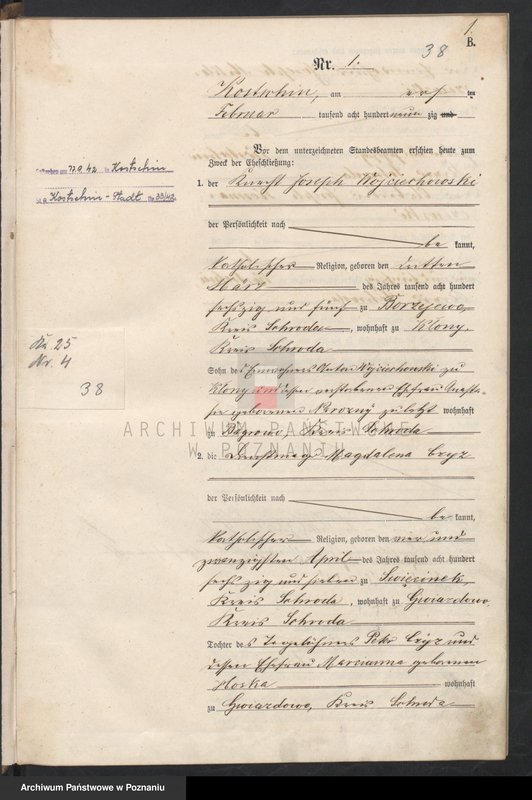 1.
38
B.
Nr. 1.
Kostschin, am ersten
Februar tausend acht hundert neun zig und
Vor dem unterzeichneten Standesbeamten erschien heute zum
Zweck der Eheschließung:
1. der Knecht Joseph Wojciechowski
der Persönlichkeit nach
bekannt,
katholischer Religion, geboren den
März des Jahres tausend acht hundert
sechszig und fünf zu Borzejewo
Kreis Schroda, wohnhaft zu Klony,
Kreis Schroda
Sohn des Einwohners Anton Wojciechowski zu
Klony und dessen verstorbenen Ehefrau Anasta-
sie geborenen zuletzt wohnhaft
zu Kreis Schroda
2. die Dienstmagd Magdalena Cryz
der Persönlichkeit nach
bekannt,
katholischer Religion, geboren den vier und
zwanzigsten April des Jahres tausend acht hundert
sechszig und sieben zu Swięcinek,
Kreis Schroda, wohnhaft zu Gwiazdowo,
Kreis Schroda
Tochter des Tagelöhners Peter Cryz und
dessen Ehefrau Marianna geborenen
Hoska wohnhaft
zu Gwiazdowo, Kreis Schroda
Gestorben am 42 in Kostschin
Kostschin-Stadt
Kr. 25
Nr. 4
38
ARCHIWUM PAŃSTWOWE
W POZNANIU
Archiwum Państwowe w Poznaniu